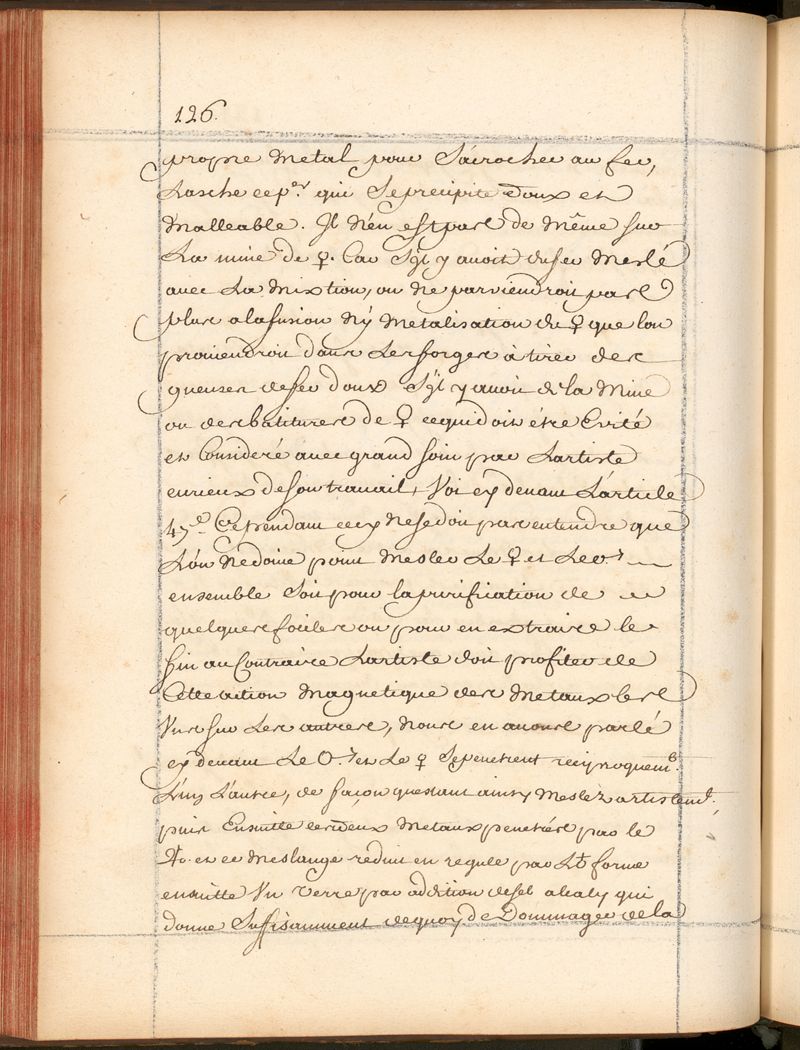 126.
propre metal pour Sacrocher au fer,
Lasche ce p.er qui Se precipite doux et
malleable. Il n'en est pas de même sur
La mine de ♀. Car S'il y auoit du fer meslé
auec La Mixtion, on ne parviendroit pas
plus a la fusion ny Metalisation du ♀ que lon
proviendroit dans Les forges à tirer des
gueuses de fer doux S'il y auoit de la Mine
ou des batitures de ♀ ce qui doit étre Evité
et Consideré auec grand soin par Lartiste
curieux de son trauail, Voi cy deuant L'article
47.e Cependant cecy ne se doit pas entendre que
L'on ne doiue point mesler Le ♀ et Le ♂
ensemble Soit pour la purification de
quelques foibles ou pour en extraire le
fin au Contraire Lartiste doit profiter de
Cette action Magnetique des Metaux les
Uns sur Les autres, nous en auons parlé
cy deuant Le ♂ et Le ♀ Se penetrent reciproquem.t
L'un L'autre, de façon questant ainsy Meslez artistem.t,
puis Ensuitte ces deux Metaux penetrés par le
et ce meslange reduit en regule par forme
ensuitte Un Verre par addition de sel alcaly qui
donne Suffisamment dequoy de Dommager de la